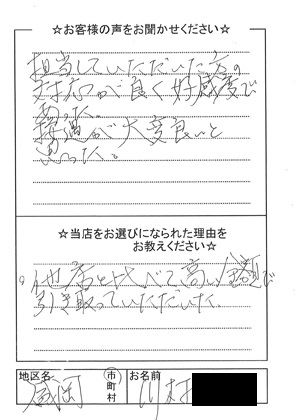 ☆お客様の声をお聞かせください☆
担当していただいた方の
対応が良く好感度で
あった。
接遇が大変良いと
思った。
☆当店をお選びになられた理由を
お教えください☆
。他店と比べて高い金額で
引き取っていただいた。
地区名
盛岡
市
町
村
お名前
川村